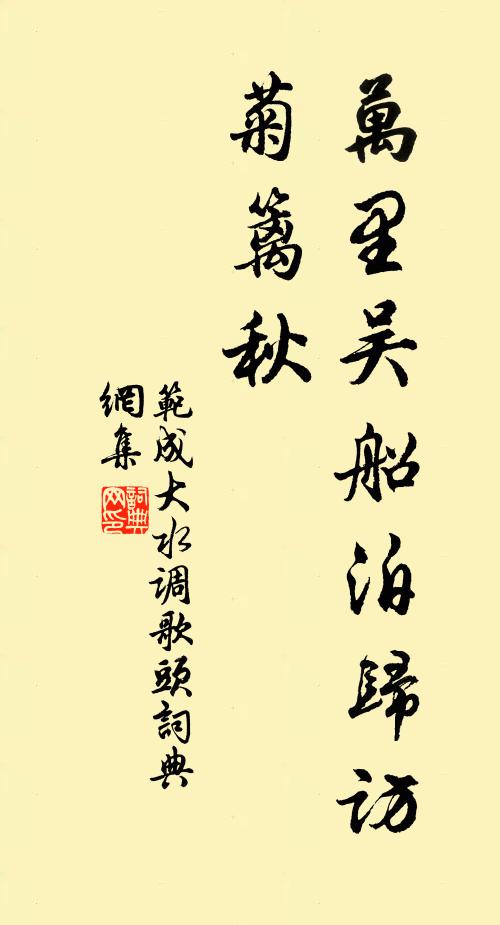 萬里吴船泊歸訪
菊籬秋
範成大水调歌頭詞典
網集
詞典
网印